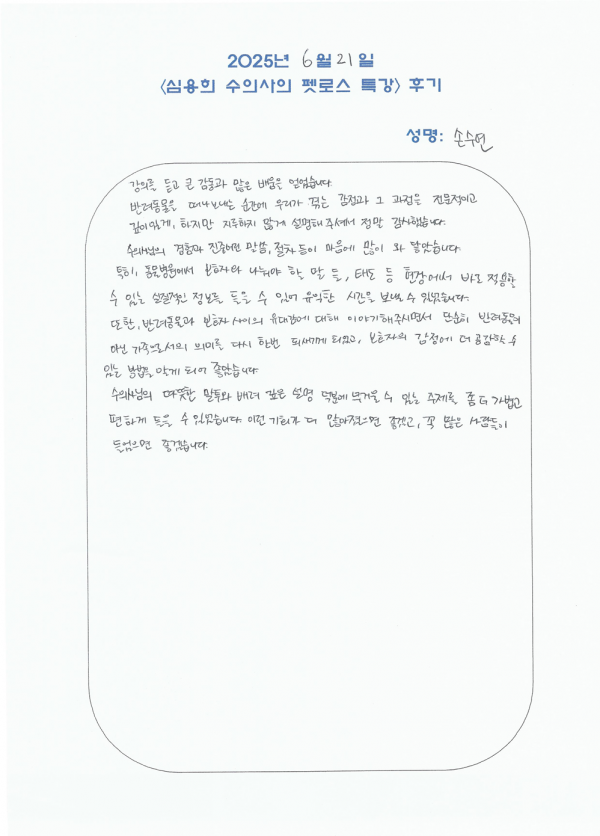 2025년 6월 21일
<심용희 수의사의 펫로스 특강> 후기
성명: 손수연
강의를 듣고 큰 감동과 많은 배움을 얻었습니다.
반려동물을 떠나보내는 순간에 우리가 겪는 감정과 그 과정을 전문적이고
깊이있게, 하지만 지루하지 않게 설명해 주셔서 정말 감사했습니다.
수의사님의 경험과 진중어린 말씀, 절차 등이 마음에 많이 와 닿았습니다.
특히, 동물병원에서 보호자와 나눠야 할 말 들, 태도 등 현장에서 바로 적용할
수 있는 실질적인 정보를 들을 수 있어 유익한 시간을 보낼 수 있었습니다.
또한, 반려동물과 보호자 사이의 유대감에 대해 이야기해주시면서 단순히 반려동물이
아닌 가족으로서의 의미를 다시 한번 되새기게 되었고, 보호자의 감정에 더 공감할 수
있는 방법을 알게 되어 좋았습니다
수의사님의 따뜻한 말투와 배려 깊은 설명 덕분에 무거울 수 있는 주제를 좀 더 가볍고
편하게 들을 수 있었습니다. 이런 기회가 더 많아졌으면 좋겠고, 꼭 많은 사람들이
들었으면 좋겠습니다.